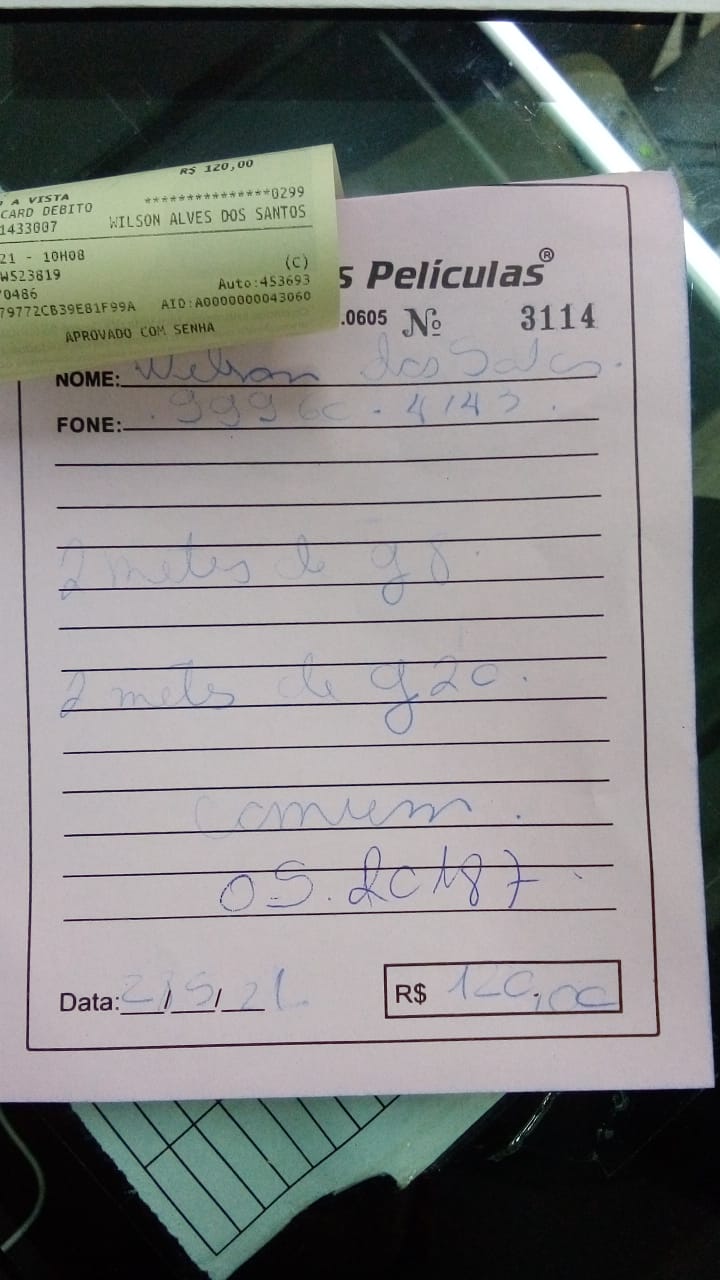 R$ 120,00
A VISTA
CARD DEBITO ***************0299
1433007 WILSON ALVES DOS SANTOS
21 - 10H08
WS23819 (C)
0486 Auto:453693
79772CB39E81F99A AID:A0000000043060
APROVADO COM SENHA
s Películas®
.0605 Nº 3114
NOME: Wilson dos Santos.
FONE: 99960-4143.
2 metes de g5.
2 mets de g20.
comum.
OS. 20187
Data: 2/5/21. R$ 120,00